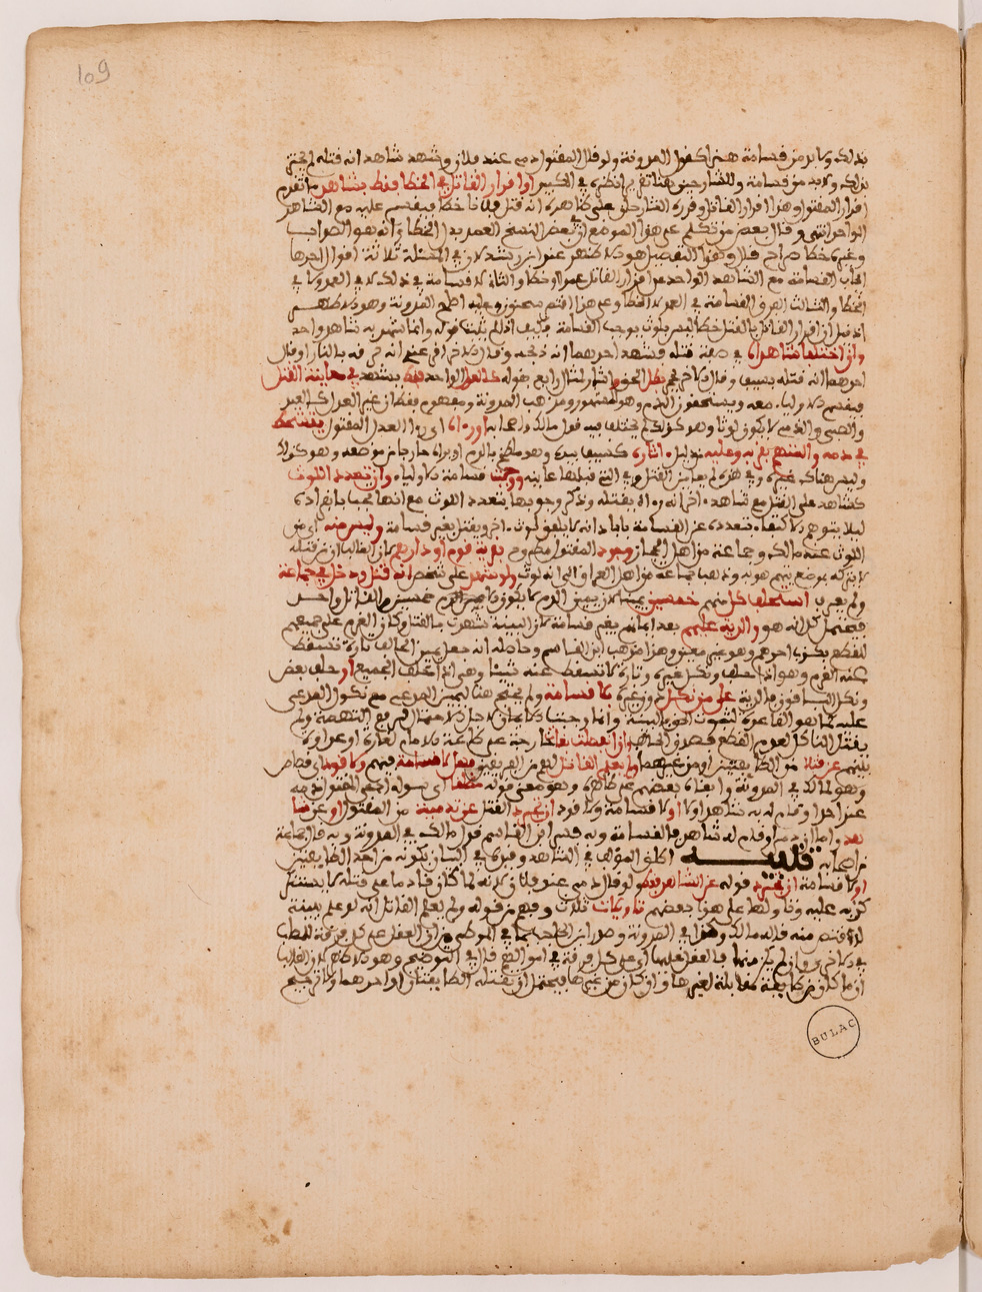 109
بذلك ولا بد من قسامة هذا كقول المدونة ولو قال المقتول دمي عند فلان وشهد شاهد انه قتله لم يجتز
بذلك ولا بد من قسامة وللشارحين هنا تقرير انظره في الكبير او اقرار القاتل في الخطا فقط بشاهد ما تقدم
اقرار المقتول وهذا اقرار القاتل وقرره الشارح على ظاهره انه قتل فلانا خطا فيقسم عليه مع الشاهد
الواحد انتهى وقال بعض من تكلم على هذا الموضع ان بعض النسخ العمد بدل الخطا وانه هو الصواب
وغيره خطا صراح قال وهذا التفصيل هو ظاهر عند ابن رشد لان في المسئلة ثلاثة اقوال احدها
ايجاب القسامة مع الشاهد الواحد على اقرار القاتل عمدا او خطا والثاني لا قسامة في ذلك لا في العمد ولا في
الخطا والثالث الفرق القسامة في العمد لا الخطا وعلى هذا اقتصر سحنون وعليه اصلح المدونة وهو الاظهر
اذ قيل ان اقرار القاتل بالقتل خطا ليس بلوث يوجب القسامة فكيف اذا لم يثبت قوله وانما شهد به شاهد واحد
وان اختلف شاهداه في صفة قتله فشهد احدهما انه ذبحه وقال الاخر
احدهما انه قتله بسيف وقال الاخر بحجر بطل الحق واشار لمثال رابع بقوله كالعدل الواحد فقط يشهد في معاينة القتل
فيقسم الاولياء معه ويستحقون الدم وهو المشهور ومذهب المدونة ومفهوم فقط ان غير العدل كالعبد
والصبي والذمي لا يكون لوثا وهو كذلك لم يختلف فيه قول مالك واصحابه او رءاه اي رءا العدل المقتول يتشحط
في دمه والمتهم بقربه وعليه اثاره كسيف بيده وهو ملطخ بالدم او يراه خارجا من موضعه وهو كذلك
وليس هناك غيره وفي هذه لم يعاين القتل وفي التي قبلها عاينه ووجبت قسامة الاولياء وان تعدد اللوث
كشاهد على القتل مع شاهد اخر انه رءاه يقتله وذكر وجوبها بتعدد اللوث مع انها تجب بانفراده
ليلا يتوهم الاكتفاء بتعدده عن القسامة
اللوث عند مالك وجماعة من اهل الحجاز وجود المقتول مطروح بقرية قوم او دارهم لان الغالب ان من قتله
لا يتركه بموضع يتهم هو به وذهب جماعة من اهل العراق الى انه لوث ولو شهد على شخص انه قتل ودخل في جماعة
ولم يعرف استحلف كل منهم خمسين يمينا لان يمين الدم لا يكون الا خمسين والقاتل واحد
فيحتمل كل انه هو والدية عليهم بعد ايمانهم بغير قسامة لان البينة شهدت بالقتل وكان الغرم على جميعهم
للقطع بكذب احدهم وهو غير معين وهذا مذهب ابن القاسم وحاصله انه جعل يمين الحالف تارة تسقط
عنه الغرم وهو اذا حلف ونكل غيره وتارة لا تسقط عنه شيئا وهي اذا حلف الجميع او حلف بعض
ونكل الباقون فالدية على من نكل دون غيره بلا قسامة ولم يحتج هنا ليمين المدعي مع نكول المدعى
عليه كما هو القاعدة لثبوت الحق بالبينة وانما وجبت الايمان لاجل الاحتمال لدفع التهمة ولم
يقتل الناكل لعدم القطع بصدق الحالف وان انفصلت بغاة خارجة عن طاعة الامام لغارة او عداوة
بينهم عن قتلا من الطايفتين او من غيرهما ولم يعلم القاتل لهم من الفريقين فهل لا قسامة فيهم ولا قود اي قصاص
وهو لمالك في المدونة وابقاه بعضهم على ظاهره وهو معنى قوله مطلقا اي سواء ادعى المقتول دمه
عند احد او قام له به شاهد او لا او لا قسامة ولا قود ان تجرد القتل عن تدمية من المقتول او عن شاهد
فقط واما ان دمى او قام له شاهد فالقسامة وبه فسر ابن القاسم قول مالك في المدونة وبه قال جماعة
من اصحابه تنبيه اطلق المؤلف في الشاهد وقيده في البيان بكونه من احد الطايفتين
او لا قسامة ان تجرد قوله عن الشاهد فقط ولو قال دمي عند فلان لانه لما كان قيامها على قتله لا يستنكر
كذبه عليه وتاولها على هذا بعضهم تاويلات ثلاث وفهم من قوله ولم يعلم القاتل انه لو علم ببينة
لا اقتص منه قاله مالك وهذا في المدونة وصدر ابن الحاجب بما في الموطا من ان العقل على كل فرقة لمن اصيب
في الاخرى وان لم يكن منهما فالعقل عليهما اي على كل فرقة في اموالهم قال في التوضيح وهو الاظهر لان الغالب
ان ما كان من طايفة فقاتله لغيرها وان كان من غيرها فيحتمل ان يقتله الطايفتان او احدهما ولا ترجيح
BULAC